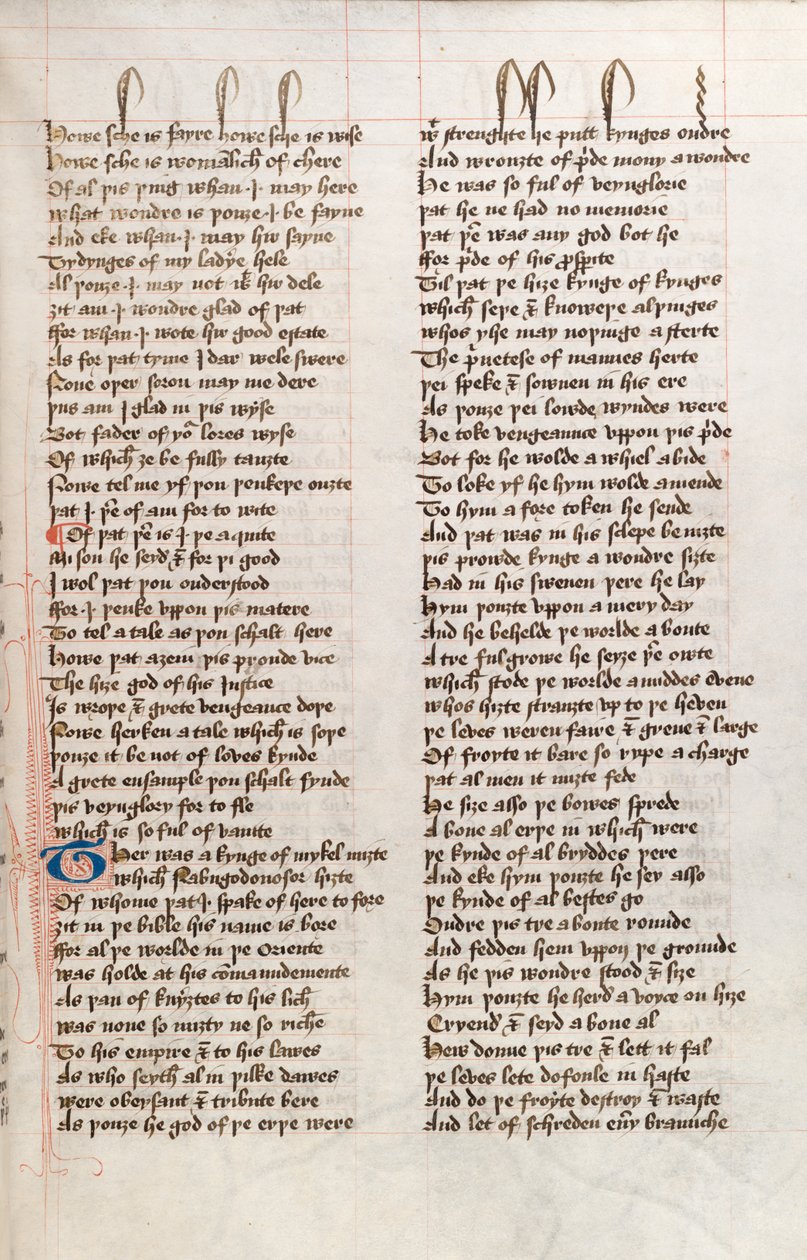 Howe sche is fayre howe sche is wise
Howe sche is womãlich of chere
Of al þis þing whan .I. may here
what wondre is þouze .I. be fayne
And eke whan .I. may hir sayne
Tydynges of my ladye hele
Al þouze .I. may not wt hir dele
zit am .I. wondre glad of þat
ffor whan .I. wote hir good estate
As for þat tyme I dar wele swere
None oþer sorou may me dere
þus am I glad in þis wyse
Bot fader of yor lores wyse
Of which ze be fully tauzte
Nowe tel me yf þou þenkeþe ouzte
þat .I. þer of am for to wite
¶ Of þat þer is .I. þe aquite
Mi son he seyd & for þi good
I wol þat þou onderstood
ffor .I. þenke vppon þis matere
To tel a tale as þou schalt here
Howe þat azein þis proude vice
The hize god of his Justice
Is wroþe & grete vengeance doþe
Nowe herken a tale which is soþe
þouze it be not of loves kynde
A grete ensample þou schalt fynde
þis veynglory for to fle
which is so ful of vanite
Ther was a kynge of mykel mizte
which Nabugodonosor hizte
Of whome þat .I. spake of here to fore
zit in þe bible his name is bore
ffor al þe worlde in þe Oriente
was holde at his comaundemente
As þan of knyztes to his lich
was none so mizty ne so riche
To his empire & to his lawes
As who seyth al in þilke dawes
were obeysant & tribute bere
As þouze he god of þe erþe were
wt strenghte he putt kynges ondre
And wrouzte of pride mony a wondre
He was so ful of veynglorie
þat he ne had no memorie
þat þer was any god bot he
ffor pride of his prosprite
Til þat þe hize kynge of kynges
which seþe & knoweþe al þinges
whos yhe may noþinge asterte
The privetese of mannes herte
þei speke & sownen in his ere
As þouze þei lowde wyndes were
He toke vengeannce vppon þis pride
Bot for he wolde a whiel abide
To loke yf he hym wolde amende
To hym a fore token he sende
And þat was in his sclepe be nizte
þis prowde kynge a wondre sizte
Had in his swenen þere he lay
Hym þouzte vppon a mery day
And he behelde þe worlde a boute
A tre ful growe he seyze þer owte
which stode þe worlde amiddes evene
whos hizte strauzte vp to þe heven
þe leves weren faire & grene & large
Of froyte it bare so rype a charge
þat al men it mizte fede
He size also þe bowes sprede
A bove al erþe in which were
þe kynde of al bryddes þere
And eke hym þouzte he sey also
þe kynde of al bestes go
Ondre þis tre a boute rounde
And fedden hem vppon þe grounde
As he þis wondre stood & size
Hym þouzte he herd a voyce on hize
Cryend & seyd a bove al
Hew donne þis tre & lett it fal
þe leves lete defoule in haste
And do þe froyte destroy & waste
And let of schreden euery braunche